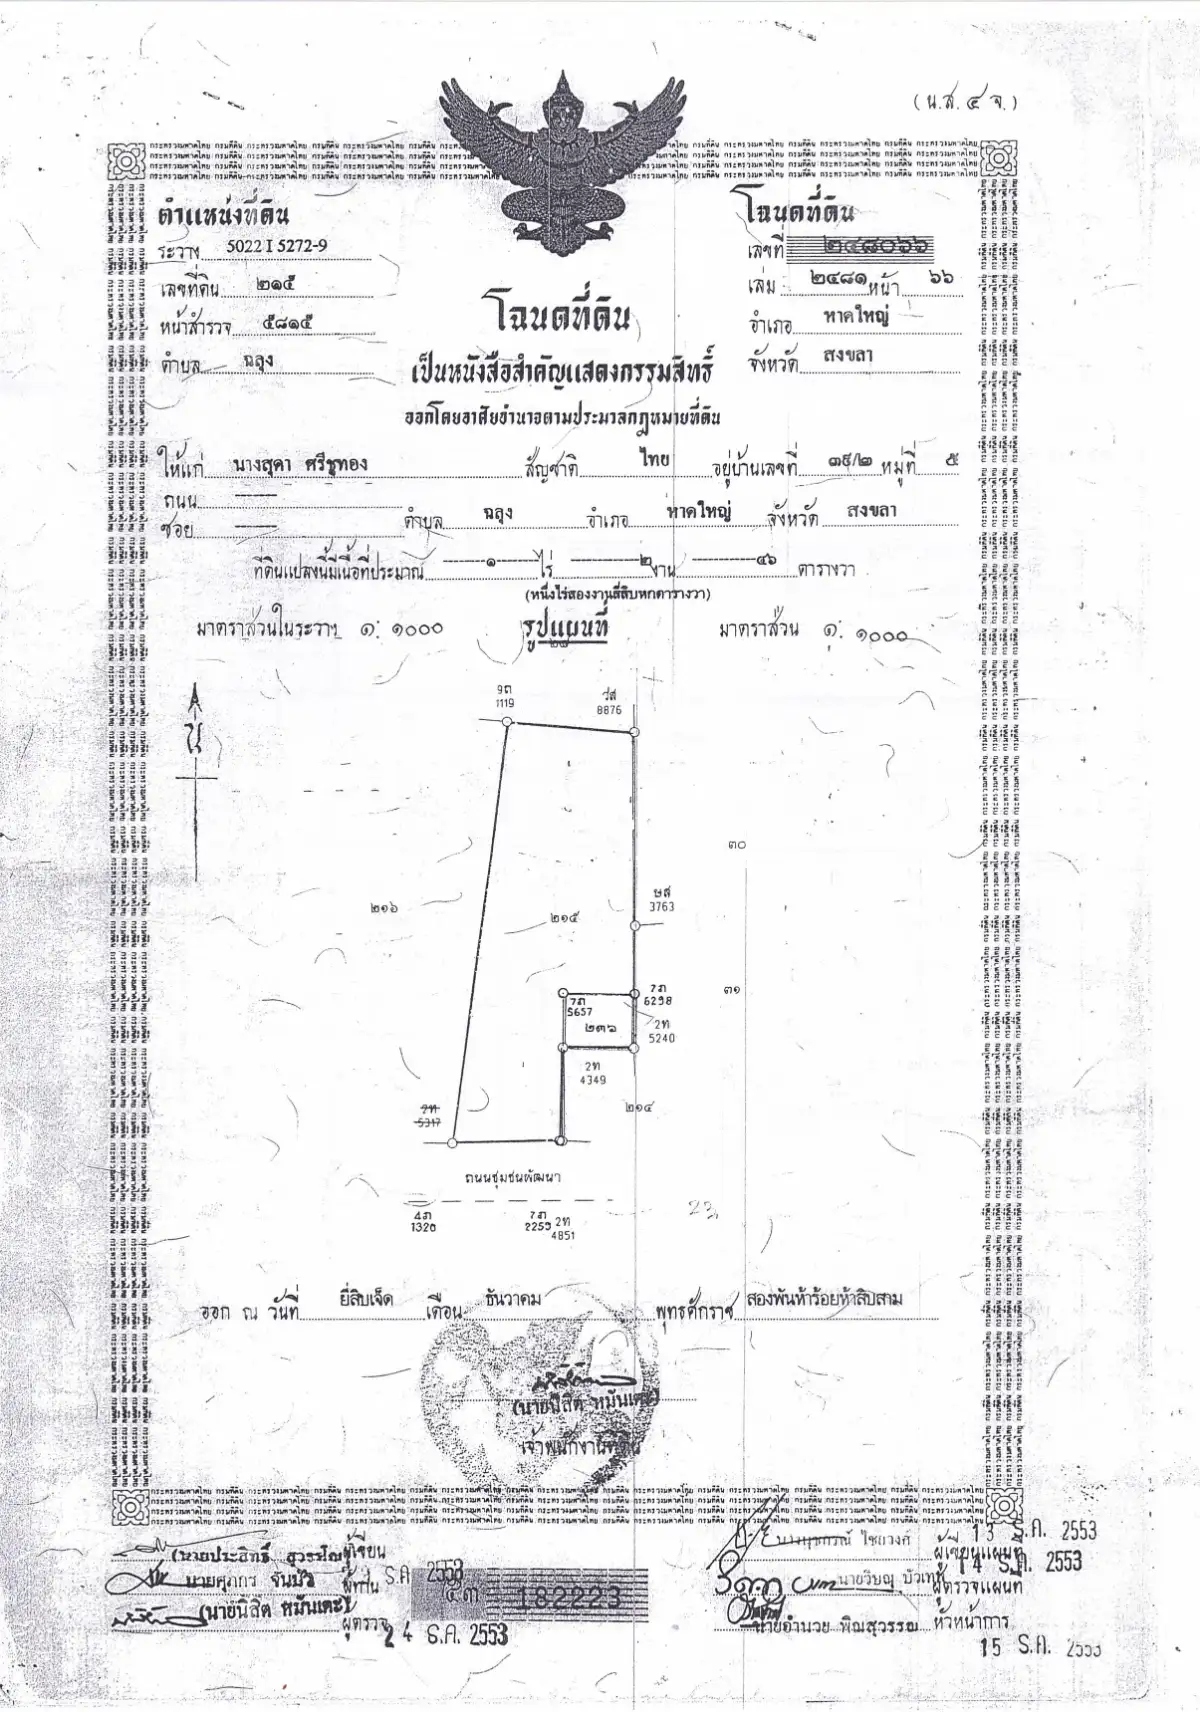 (น.ส. ๔ จ.)
ตำแหน่งที่ดิน
ระวาง 5022 I 5272-9
เลขที่ดิน ๒๑๕
หน้าสำรวจ ๕๘๑๕
ตำบล ฉลุง
โฉนดที่ดิน
เลขที่ ๒๔๘๐๖๖
เล่ม ๒๔๘๑ หน้า ๖๖
อำเภอ หาดใหญ่
จังหวัด สงขลา
โฉนดที่ดิน
เป็นหนังสือสำคัญแสดงกรรมสิทธิ์
ออกโดยอาศัยอำนาจตามประมวลกฎหมายที่ดิน
ให้แก่ นางสุดา ศรีชูทอง สัญชาติ ไทย อยู่บ้านเลขที่ ๓๙/๒ หมู่ที่ ๕
ถนน
ซอย ตำบล ฉลุง อำเภอ หาดใหญ่ จังหวัด สงขลา
ที่ดินแปลงนี้มีเนื้อที่ประมาณ ๑ ไร่ ๒ งาน ๔๖ ตารางวา
(หนึ่งไร่สองงานสี่สิบหกตารางวา)
มาตราส่วนในระวาง ๑: ๑๐๐๐ รูปแผนที่ มาตราส่วน ๑: ๑๐๐๐
น
1119
8876
๓๐
ษส
3763
๒๑๖
๒๑๕
๓๑
7ภ
6298
7ภ
5657
๒๓๖
2ท
5240
2ท
4349
๒๑๔
5317
ถนนชุมชนพัฒนา
23
4ภ
1320
7ภ
2259
2ท
4851
ออก ณ วันที่ ยี่สิบเจ็ด เดือน ธันวาคม พุทธศักราช สองพันห้าร้อยห้าสิบสาม
(นายนิสิต หมันเตะ)
เจ้าพนักงานที่ดิน
(นายประสิทธิ์ ผู้เขียน
นายศุภกร ผู้ทาน ธ.ค. 2553
(นายนิสิต หมันเตะ) ผู้ตรวจ
24 ธ.ค. 2553
182223
ไชยวงค์ ผู้เขียนแผนที่ 13 ธ.ค. 2553
นายวิษณุ ผู้ตรวจแผนที่ 14 ธ.ค. 2553
นายอำนวย พิณสุวรรณ หัวหน้าการ
15 ธ.ค. 2553